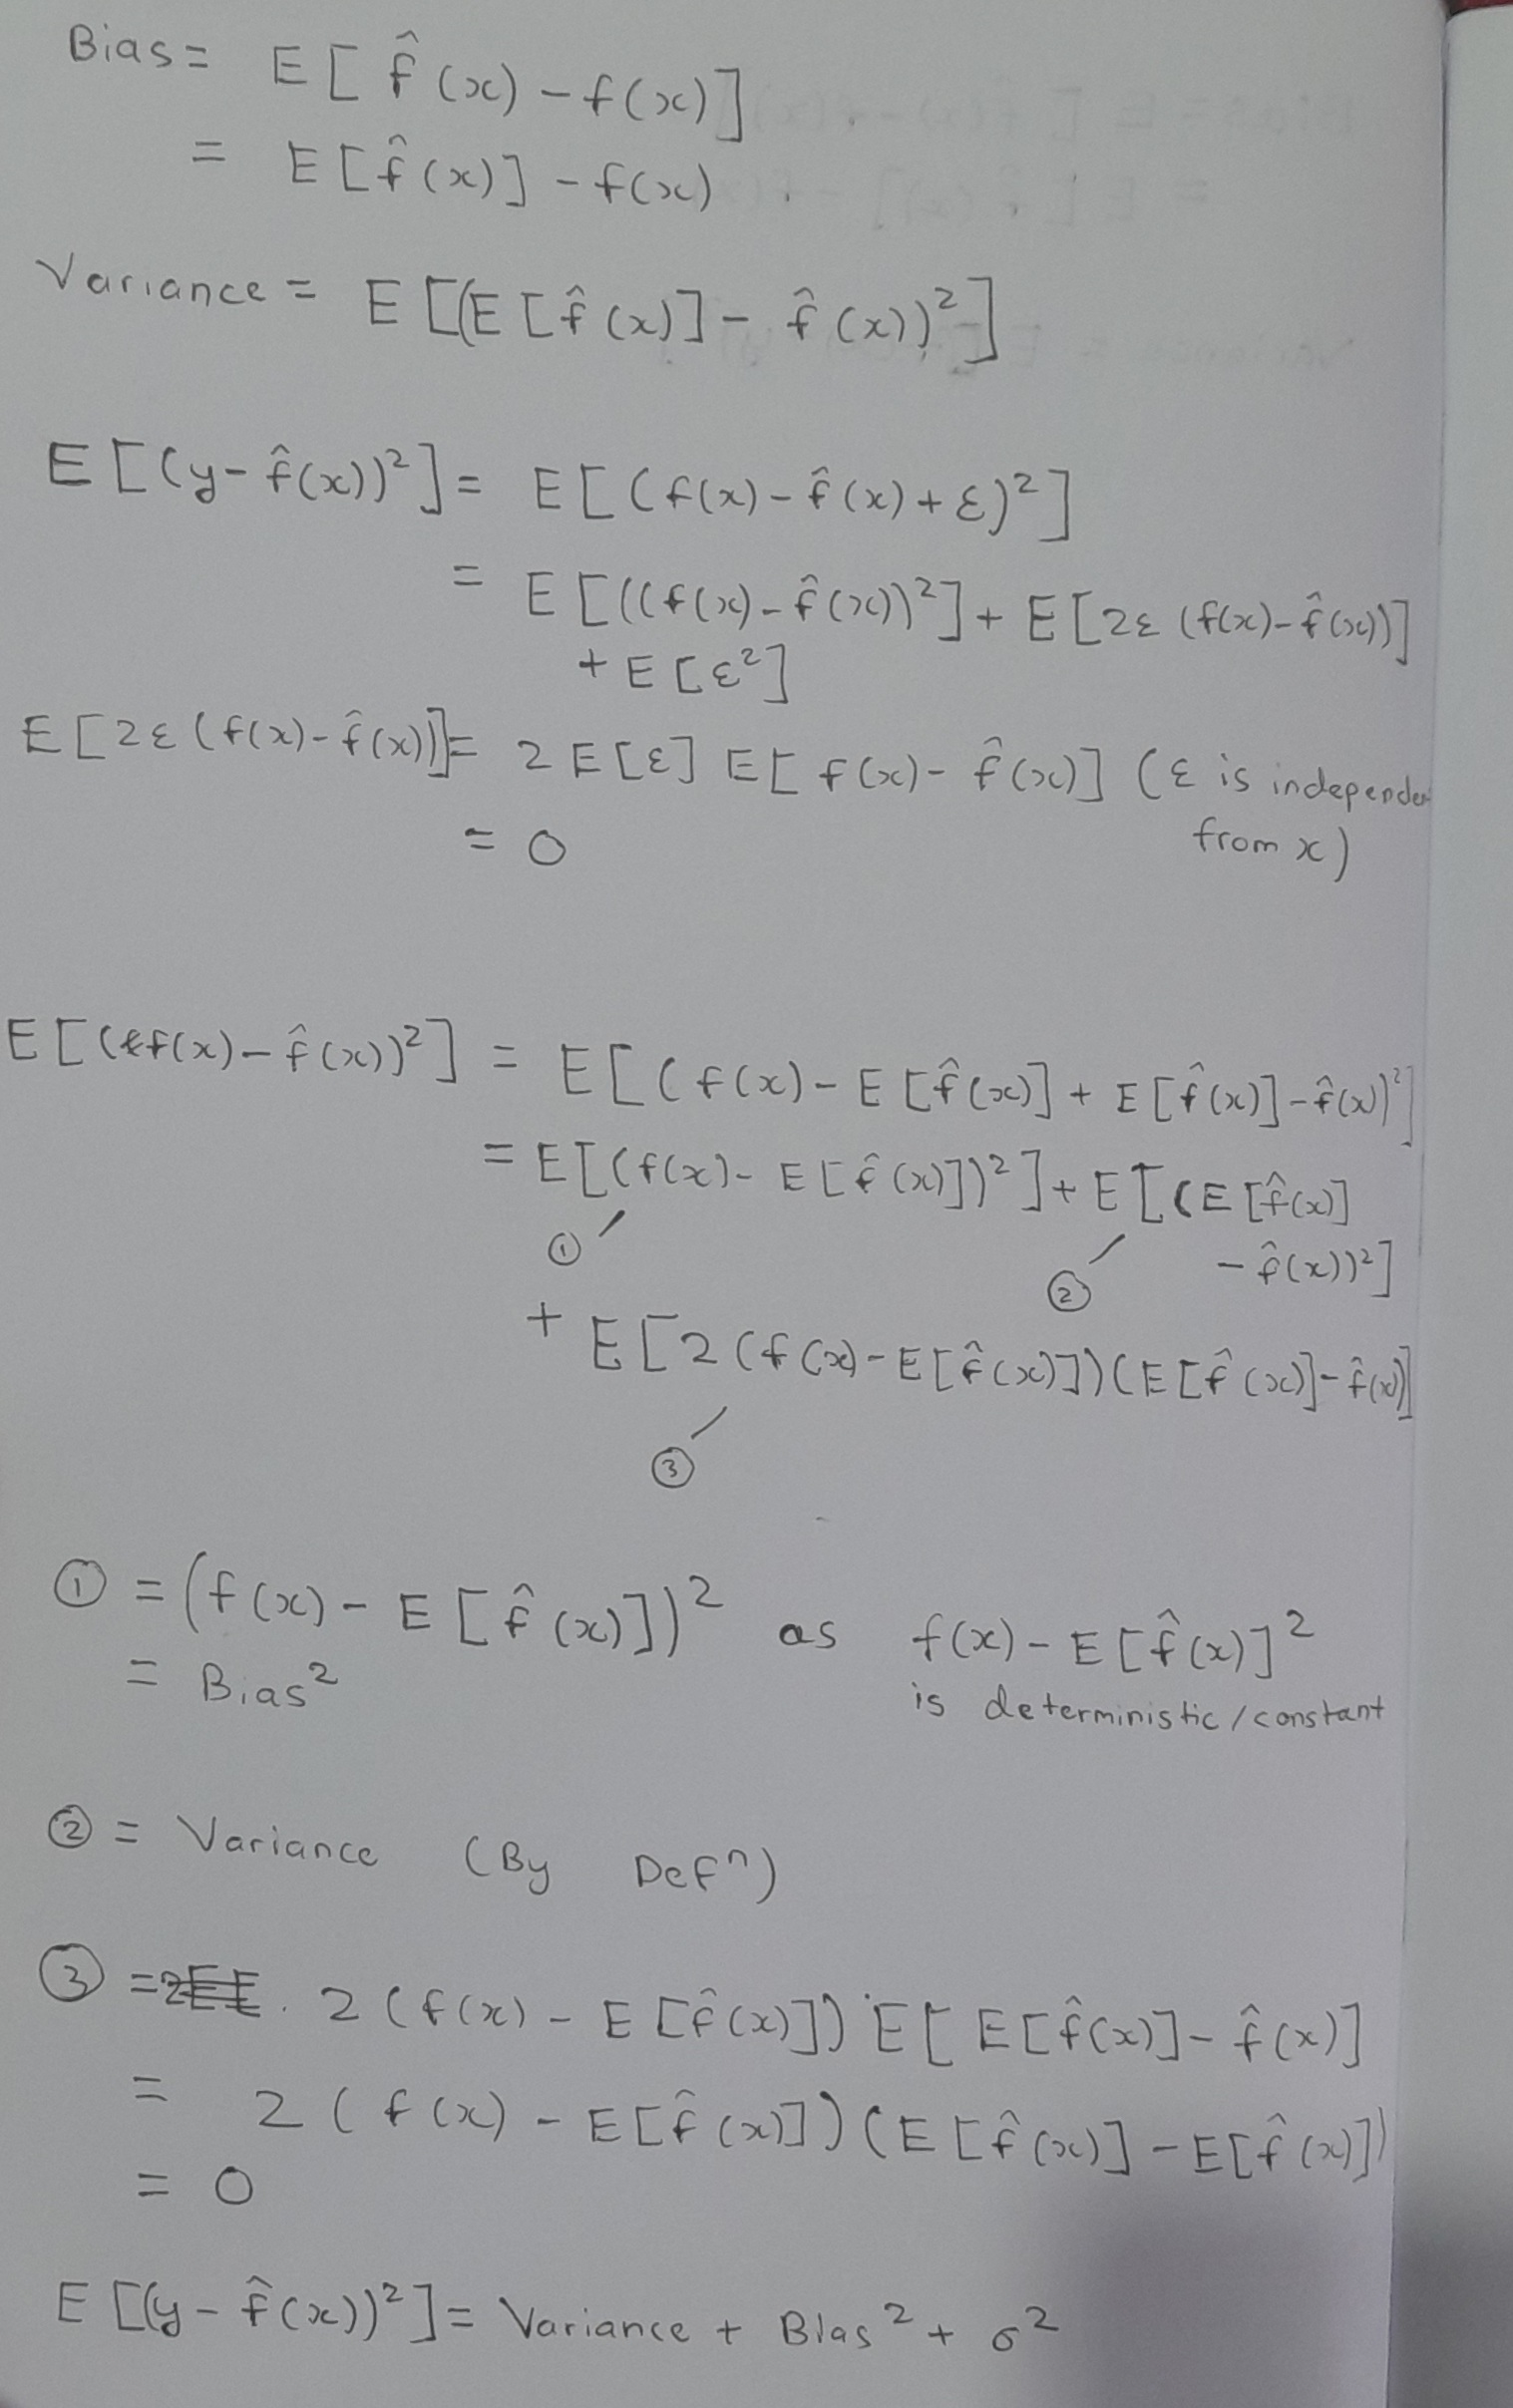 Bias = E[f̂(x) - f(x)]
= E[f̂(x)] - f(x)
Variance = E[(E[f̂(x)] - f̂(x))²]
E[(y - f̂(x))²] = E[(f(x) - f̂(x) + ε)²]
= E[((f(x) - f̂(x))²] + E[2ε(f(x) - f̂(x))]
+ E[ε²]
E[2ε(f(x) - f̂(x))] = 2E[ε] E[f(x) - f̂(x)] (ε is independen
from x)
= 0
E[(f(x) - f̂(x))²] = E[(f(x) - E[f̂(x)] + E[f̂(x)] - f̂(x))²]
= E[(f(x) - E[f̂(x)])²] + E[(E[f̂(x)]
① ② - f̂(x))²]
+ E[2(f(x) - E[f̂(x)])(E[f̂(x)] - f̂(x)]
③
① = (f(x) - E[f̂(x)])² as f(x) - E[f̂(x)]²
= Bias² is deterministic/constant
② = Variance (By Defⁿ)
③ = 2(f(x) - E[f̂(x)]) E[E[f̂(x)] - f̂(x)]
= 2(f(x) - E[f̂(x)])(E[f̂(x)] - E[f̂(x)])
= 0
E[(y - f̂(x))²] = Variance + Bias² + σ²